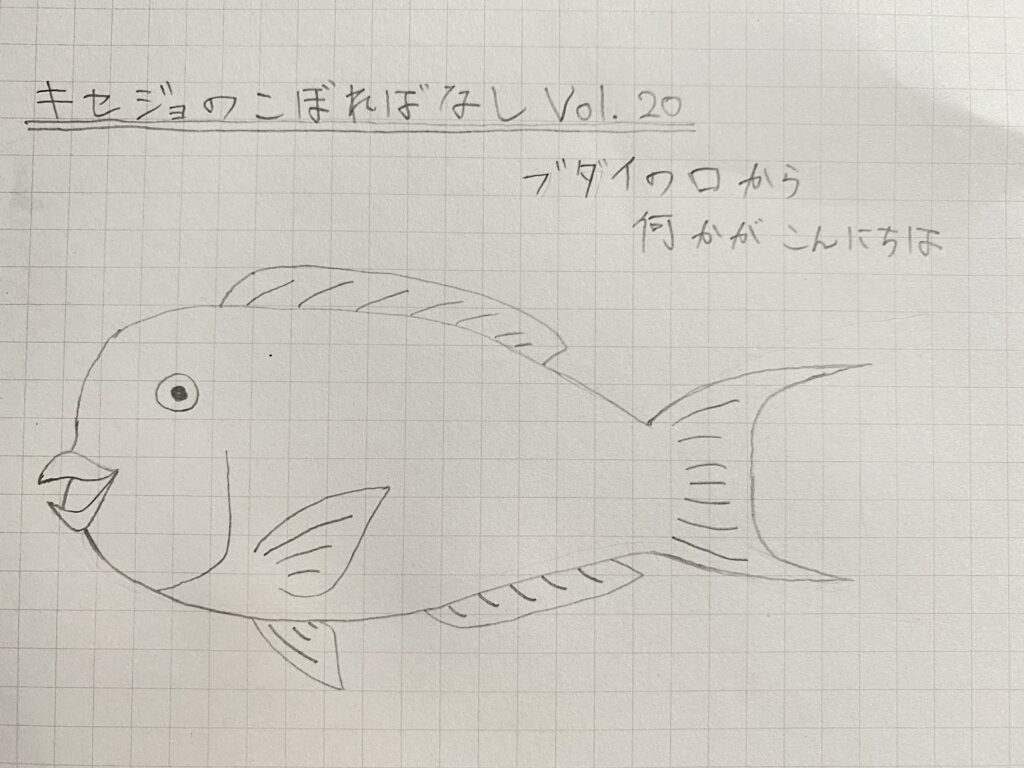 キセジョのこぼればなし Vol. 20
ブダイの口から
何かがこんにちは